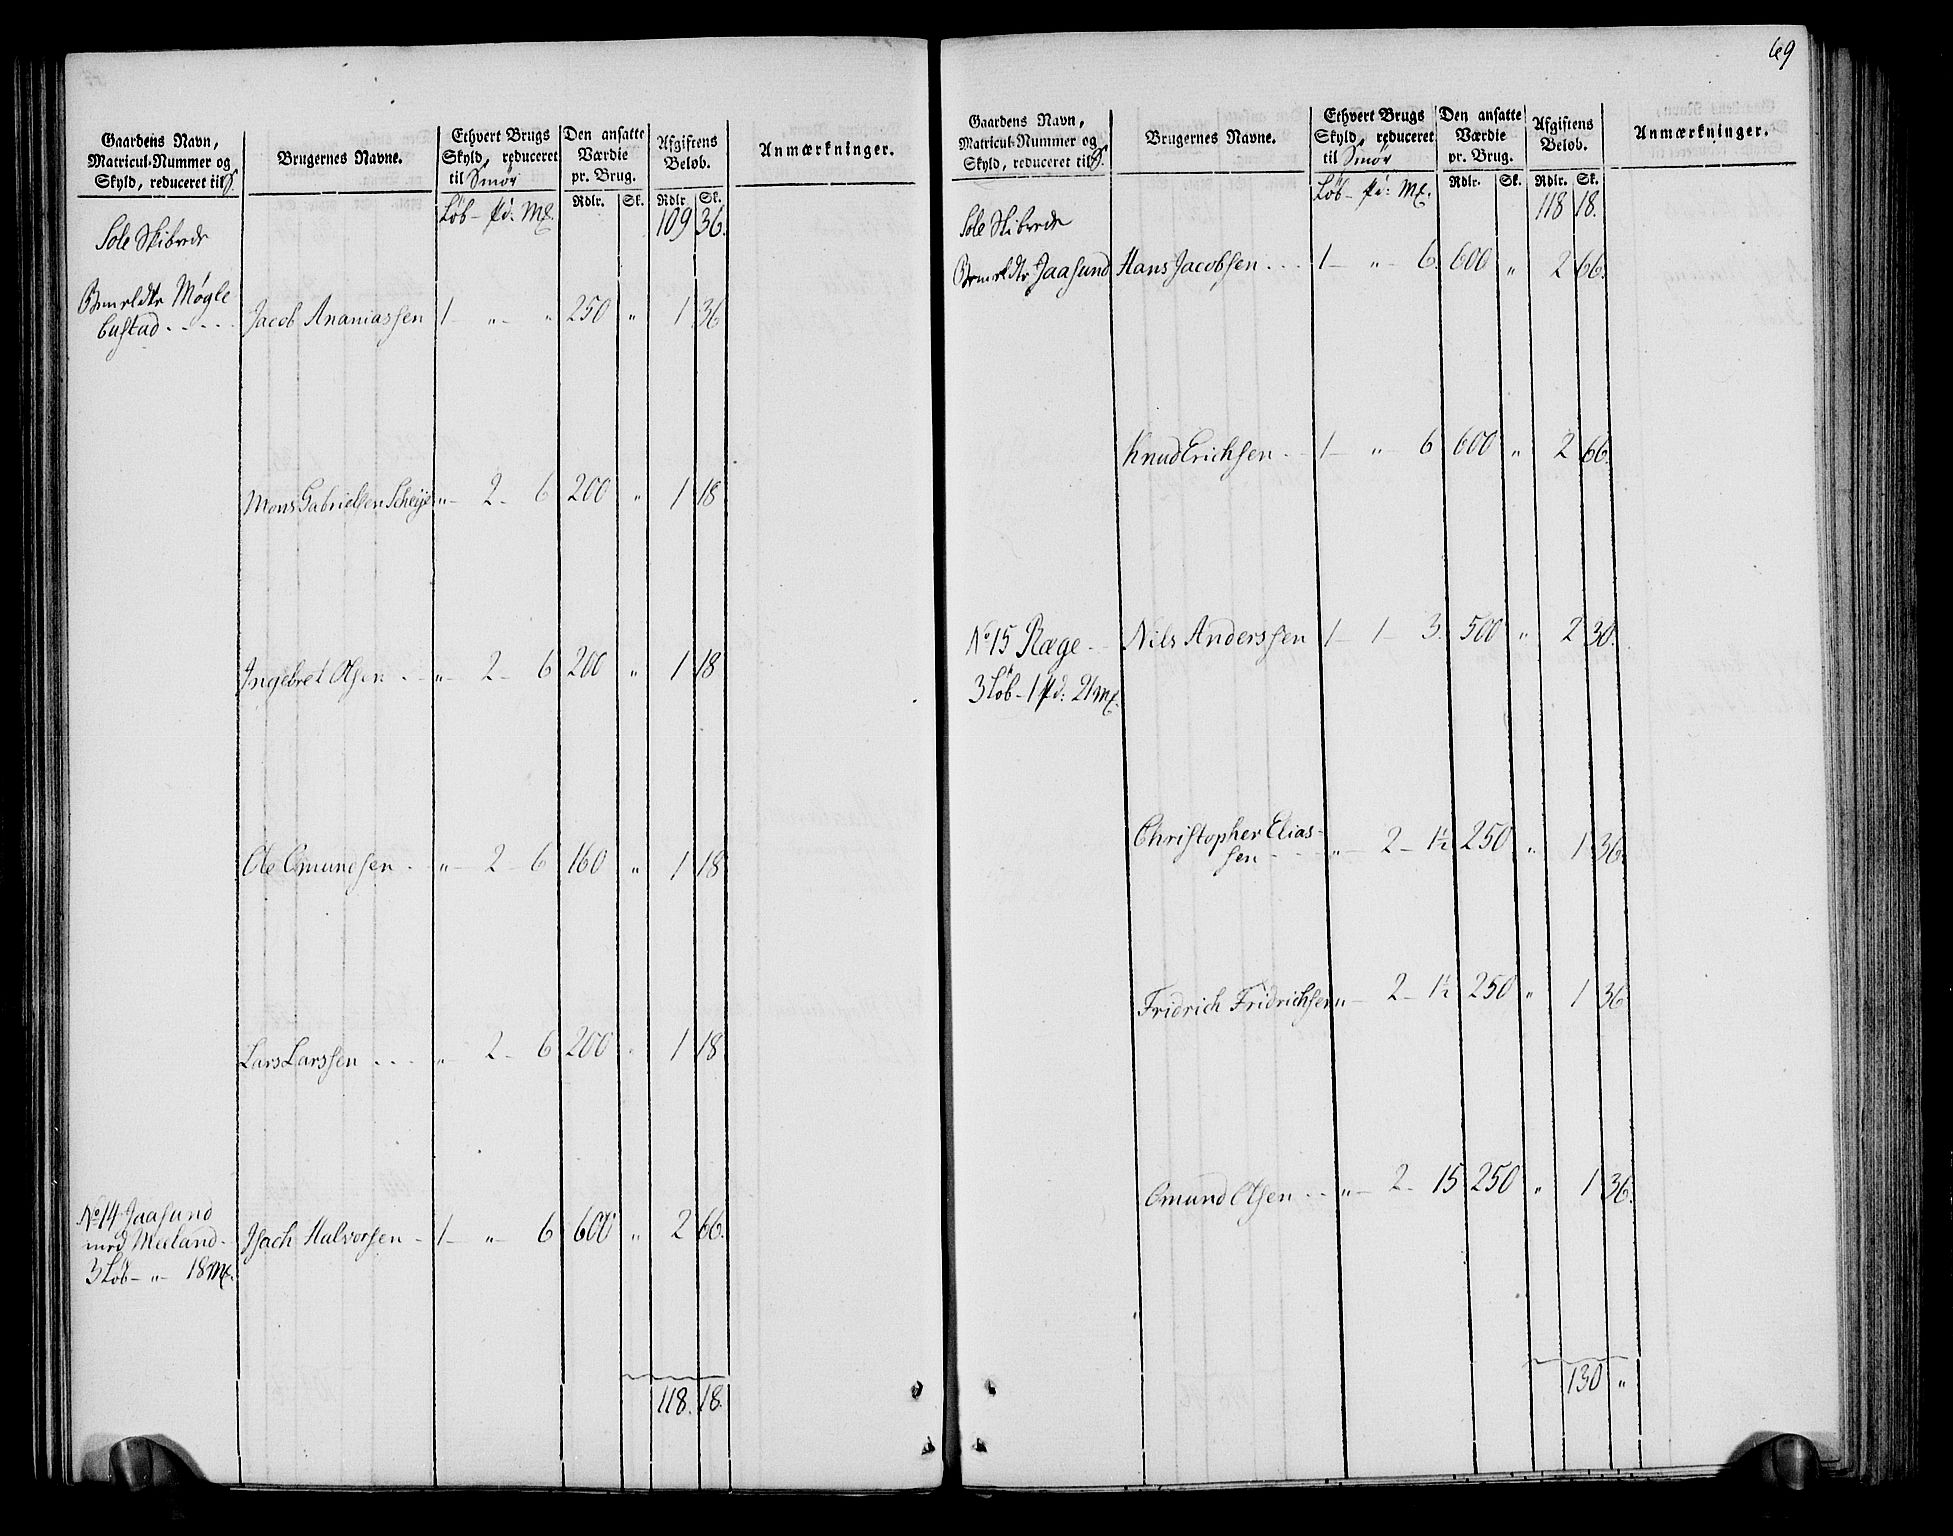 Gaardens Navn,
Matricul-Nummer og
Skyld, reduceret til
Brugernes Navne.
Ethvert Brugs
Skyld, reduceret
til Smør
Den ansatte
Værdie
pr. Brug.
Afgiftens
Beløb.
Anmærkninger.
Rdlr. Sk. Rdlr. Sk.
Løb - pd: Mk. 109 36.
Sole Skibrede
Bemeldte Møgle
bustad - - - - Jacob Ananiassen 1 - „ - „ 250 „ 1 36
Mons Gabrielsen Scheije „ - 2 - 6 200 „ 1 18
Ingebret Olsen - - „ - 2 - 6 200 „ 1 18
Ole Omundsen - - „ - 2 - 6 160 „ 1 18
Lars Larssen - - - „ 2 - 6 200 „ 1 18
No 14 Jaasund
med Meeland - Isach Halvorsen - 1 - „ - 6 600 „ 2 66.
3 Løb - „ - 18 Mk.
118. 18.
69
Gaardens Navn,
Matricul-Nummer og
Skyld, reduceret til
Brugernes Navne.
Ethvert Brugs
Skyld, reduceret
til Smør
Den ansatte
Værdie
pr. Brug.
Afgiftens
Beløb.
Anmærkninger.
Rdlr. Sk. Rdlr. Sk.
Løb - pd: Mk. 118 18.
Sole Skibrede
Bemeldte Jaasund Hans Jacobsen - - - 1 - „ - 6. 600 „ 2 66.
Knud Erichsen - - 1 - „ - 6 600 „ 2 66.
No 15 Ræge - - Nils Anderssen 1 - 1 - 3. 500 „ 2 30.
3 Løb - 1 pd: 21 Mk.
Christopher Elias-
sen - - - „ - 2 - 1½ 250 „ 1 36.
Fridrich Fridrichsen „ - 2 - 1½ 250 „ 1 36
Omund Olsen - - „ - 2 - 15 250 „ 1 36.
130 „